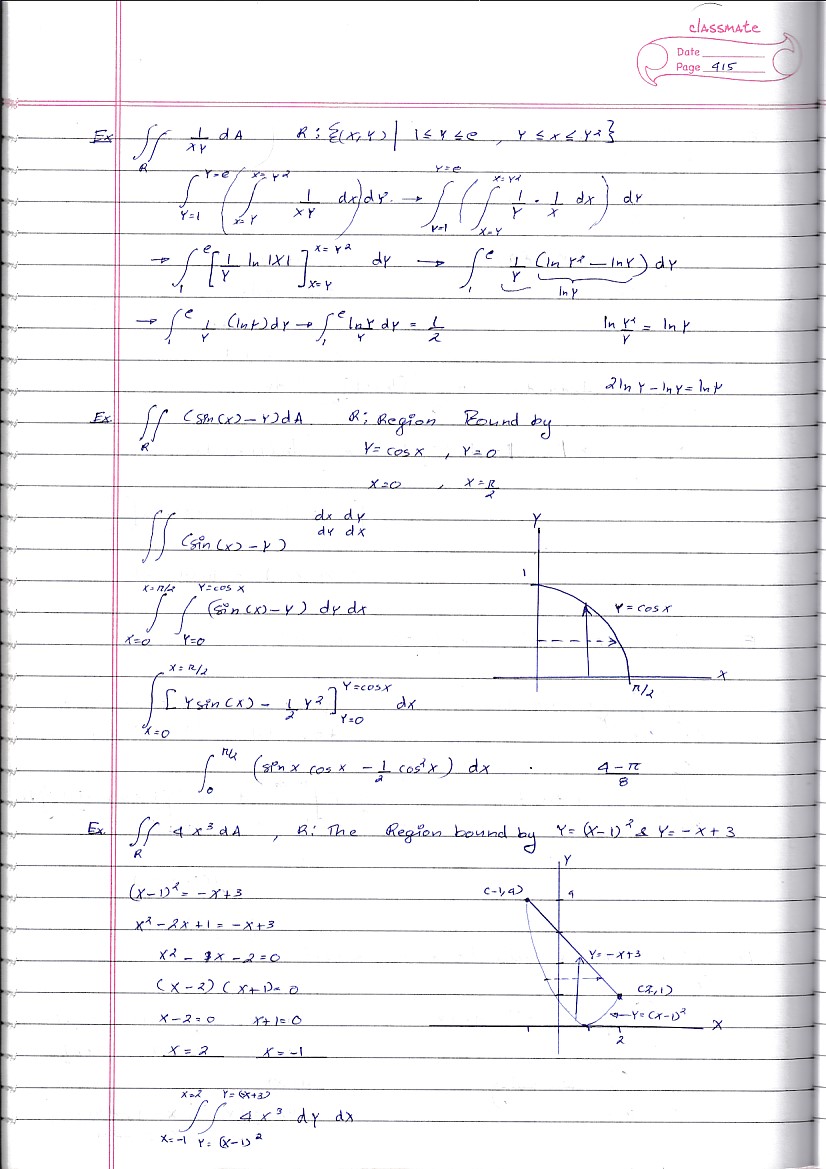 classmate
Date
Page 415
Ex ∬_R 1/(XY) dA R: {(X,Y) | 1 ≤ Y ≤ e , Y ≤ X ≤ Y²}
∫_{Y=1}^{Y=e} ( ∫_{X=Y}^{X=Y²} 1/(XY) dx ) dY. → ∫_{Y=1}^{Y=e} ( ∫_{X=Y}^{X=Y²} 1/Y · 1/X dx ) dY
→ ∫_1^e [ 1/Y ln |X| ]_{X=Y}^{X=Y²} dY → ∫_1^e 1/Y (ln Y² − ln Y) dY
ln Y
→ ∫_1^e 1/Y (ln Y) dY → ∫_1^e ln Y/Y dY = 1/2 ln Y²/Y = ln Y
2 ln Y − ln Y = ln Y
Ex ∬_R (sin(x) − Y) dA. R: Region Bound by
Y = cos X , Y = 0
X = 0 , X = π/2
∬ (sin(x) − Y) dx dy
dy dx
Y
1
Y = cos X
X
π/2
∫_{X=0}^{X=π/2} ∫_{Y=0}^{Y=cos X} (sin(x) − Y) dY dx
∫_{X=0}^{X=π/2} [ Y sin(x) − 1/2 Y² ]_{Y=0}^{Y=cos X} dx
∫_0^{π/2} (sin x cos x − 1/2 cos² x) dx . (4 − π)/8
Ex. ∬_R 4x³ dA , R: The Region bound by Y = (X−1)² & Y = −X + 3
Y
(X−1)² = −X+3
(−1,4) 4
X² − 2X + 1 = −X + 3
X² − 1X − 2 = 0
Y = −X+3
(X−2) (X+1) = 0
(2,1)
X−2=0 X+1=0
Y = (X−1)²
X
2
X = 2 X = −1
∫_{X=−1}^{X=2} ∫_{Y=(X−1)²}^{Y=(−X+3)} 4x³ dy dx